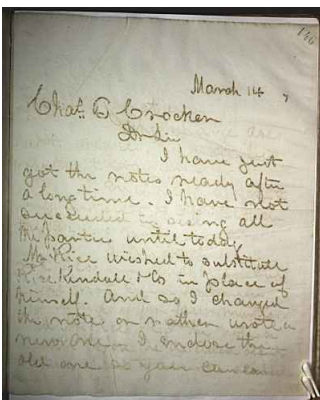 March 14
Chas. B Crocker
Dr Sir
I have just
got the notes ready after
a long time. I have not
succeeded in seeing all
the parties until today
Mr Rice wished to substitute
Rice Kendall & Co in place of
himself. And so I changed
the note or rather wrote a
new one. I enclose the
old one so you can